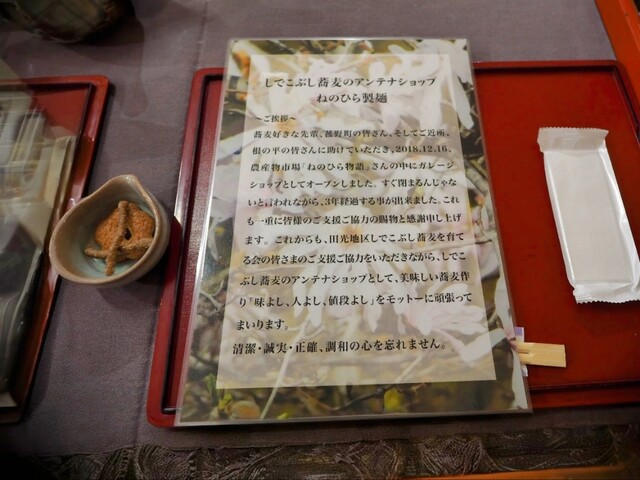 しでこぶし蕎麦のアンテナショップ
ねのひら製麺
～ご挨拶～
蕎麦好きな先輩、菰野町の皆さん、そしてご近所、
根の平の皆さんに助けていただき、2018.12.16、
農産物市場「ねのひら物語」さんの中にガレージ
ショップとしてオープンしました。すぐ閉まるんじゃな
いと言われながら、3年経過する事が出来ました。これ
も一重に皆様のご支援ご協力の賜物と感謝申し上げ
ます。これからも、田光地区しでこぶし蕎麦を育て
る会の皆さまのご支援ご協力をいただきながら、しでこ
ぶし蕎麦のアンテナショップとして、美味しい蕎麦作
り「味よし、人よし、値段よし」をモットーに頑張って
まいります。
清潔・誠実・正確、調和の心を忘れません。